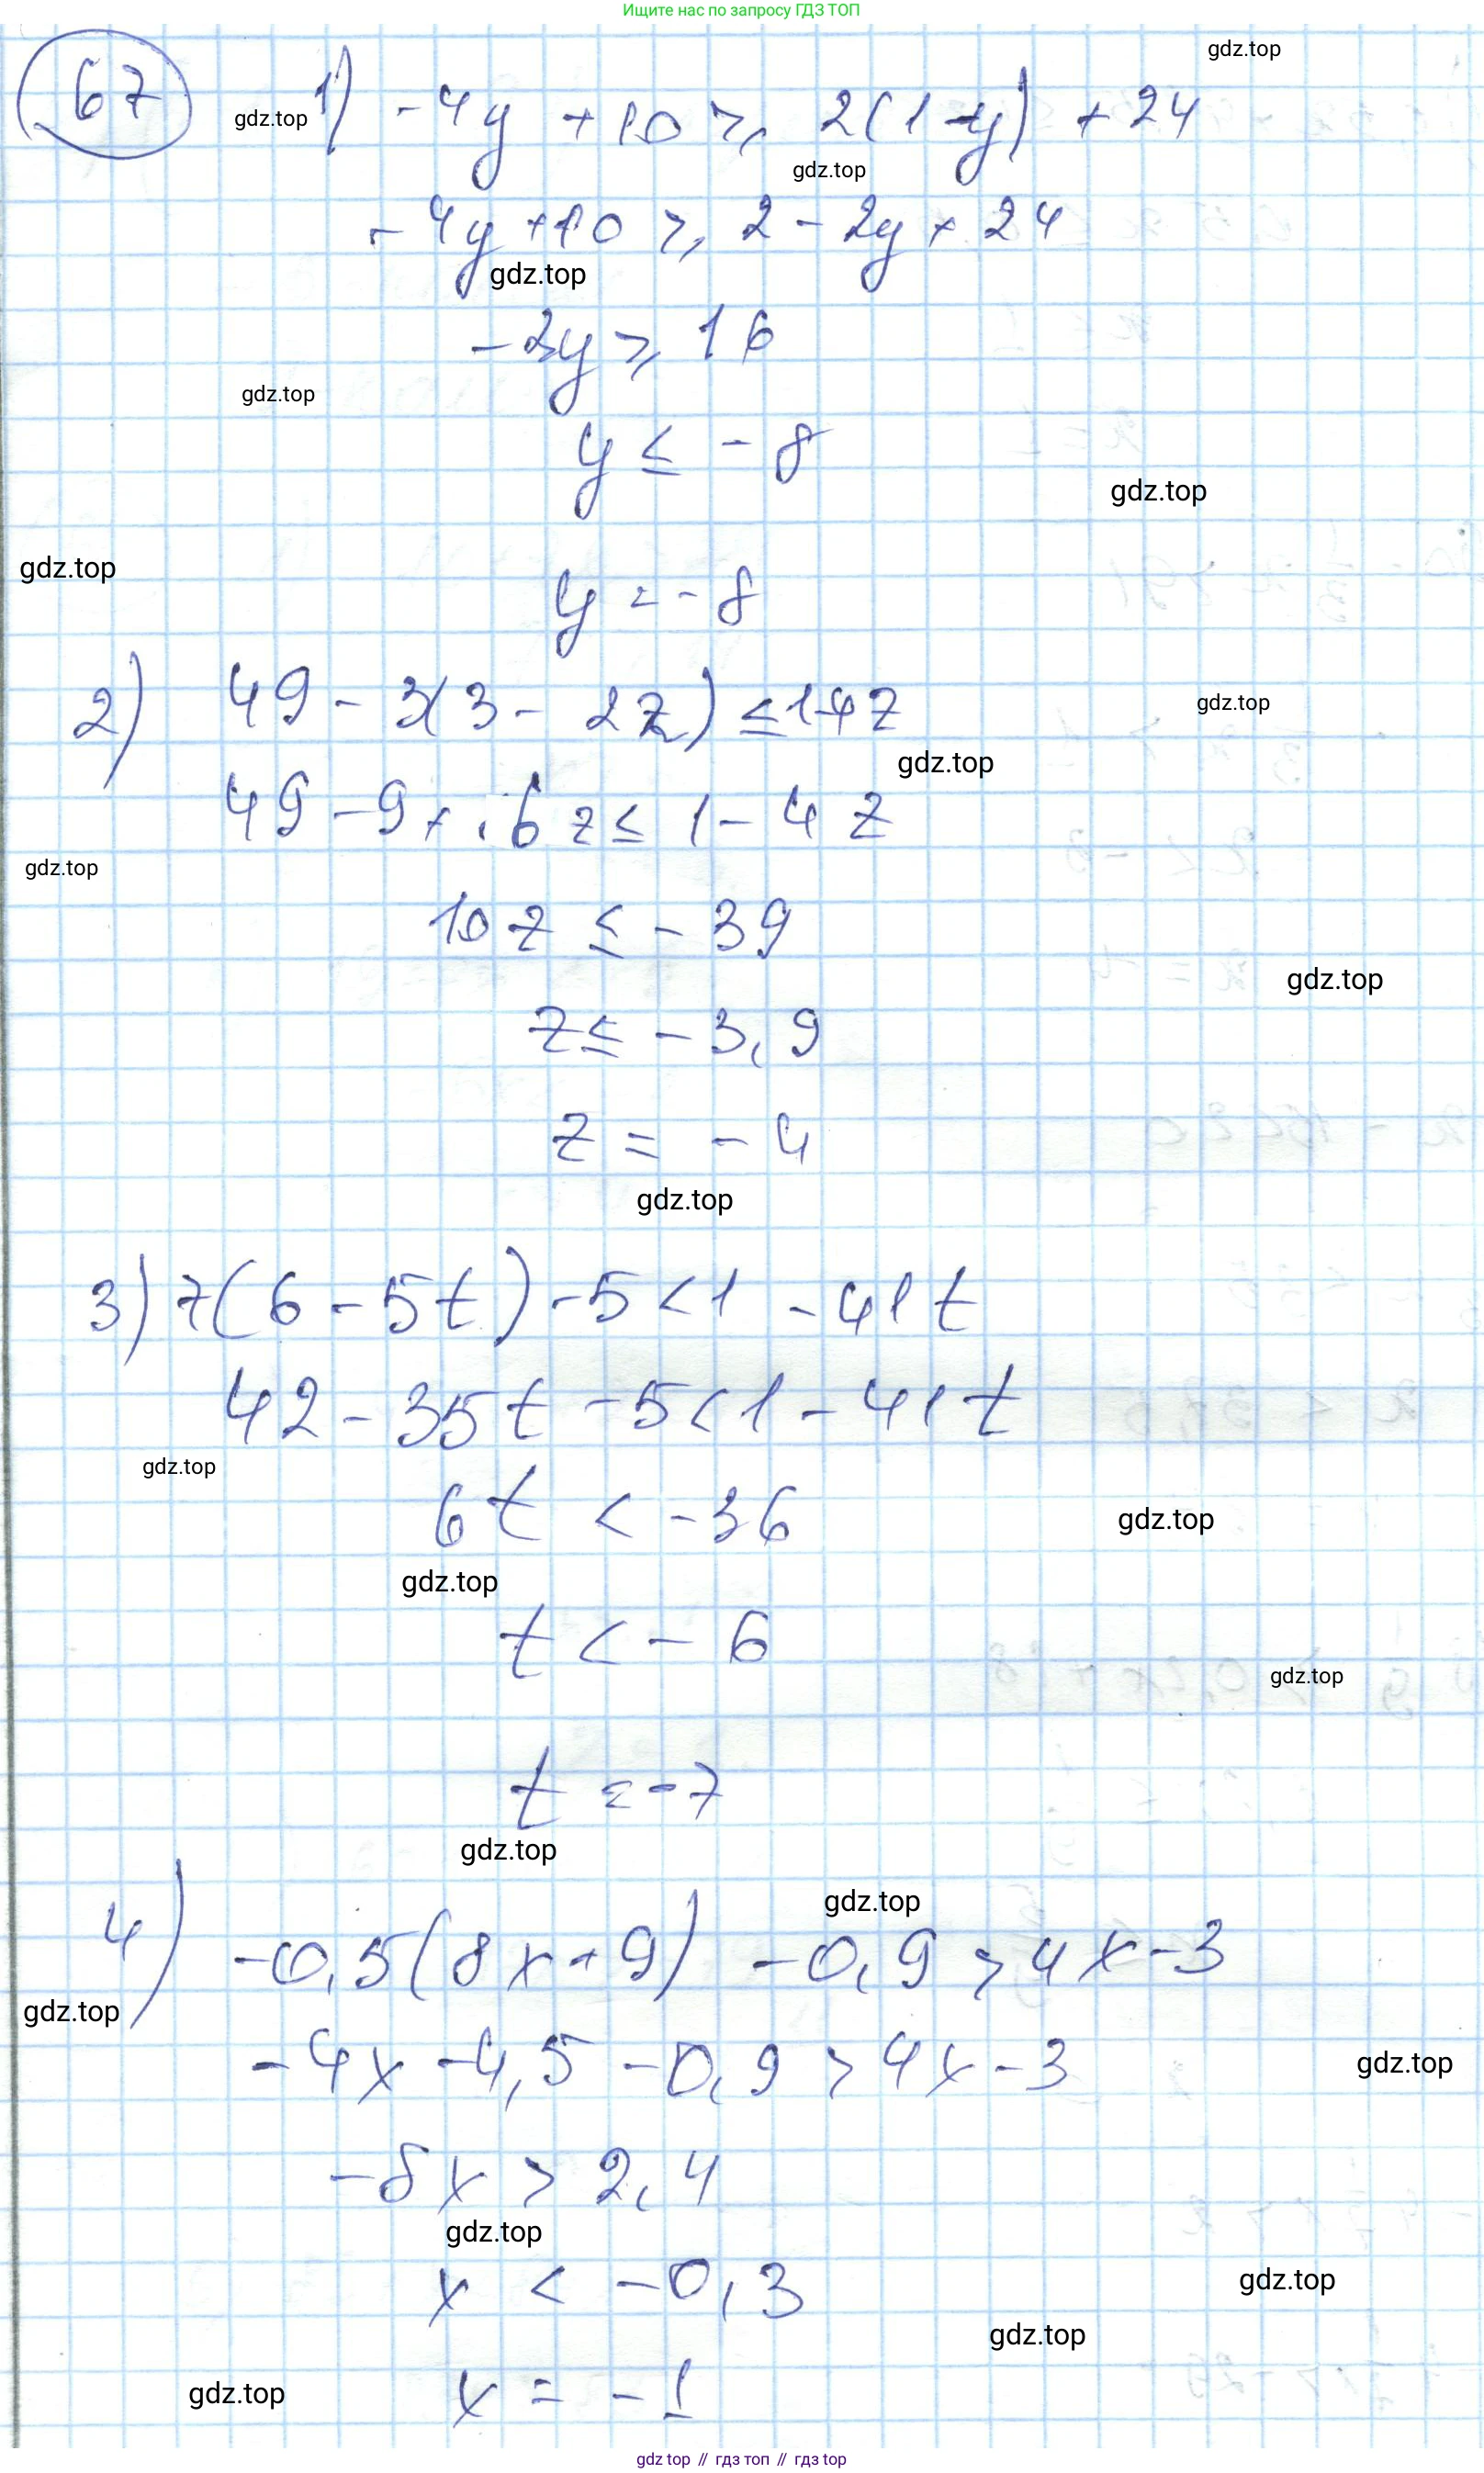 Ищите нас по запросу ГДЗ ТОП
gdz.top
67 gdz.top 1) -4y + 10 ⩾ 2(1-y) + 24
gdz.top
-4y+10 ⩾ 2 - 2y + 24
gdz.top
-2y ⩾ 16
gdz.top
y ≤ -8
gdz.top
gdz.top
y = -8
2) 49 - 3(3 - 2z) ≤ 1-4z
gdz.top
gdz.top
49 - 9 + 6z ≤ 1 - 4z
gdz.top
10z ≤ -39
gdz.top
z ≤ -3,9
z = -4
gdz.top
3) 7(6 - 5t) - 5 < 1 - 41t
42 - 35t - 5 < 1 - 41t
gdz.top
6t < -36
gdz.top
gdz.top
t < -6
gdz.top
t = -7
gdz.top
gdz.top
4) -0,5(8x + 9) - 0,9 > 4x - 3
gdz.top
-4x - 4,5 - 0,9 > 4x - 3
gdz.top
-8x > 2,4
gdz.top
x < -0,3
gdz.top
gdz.top
x = -1
gdz.top
gdz top // гдз топ // гдз top